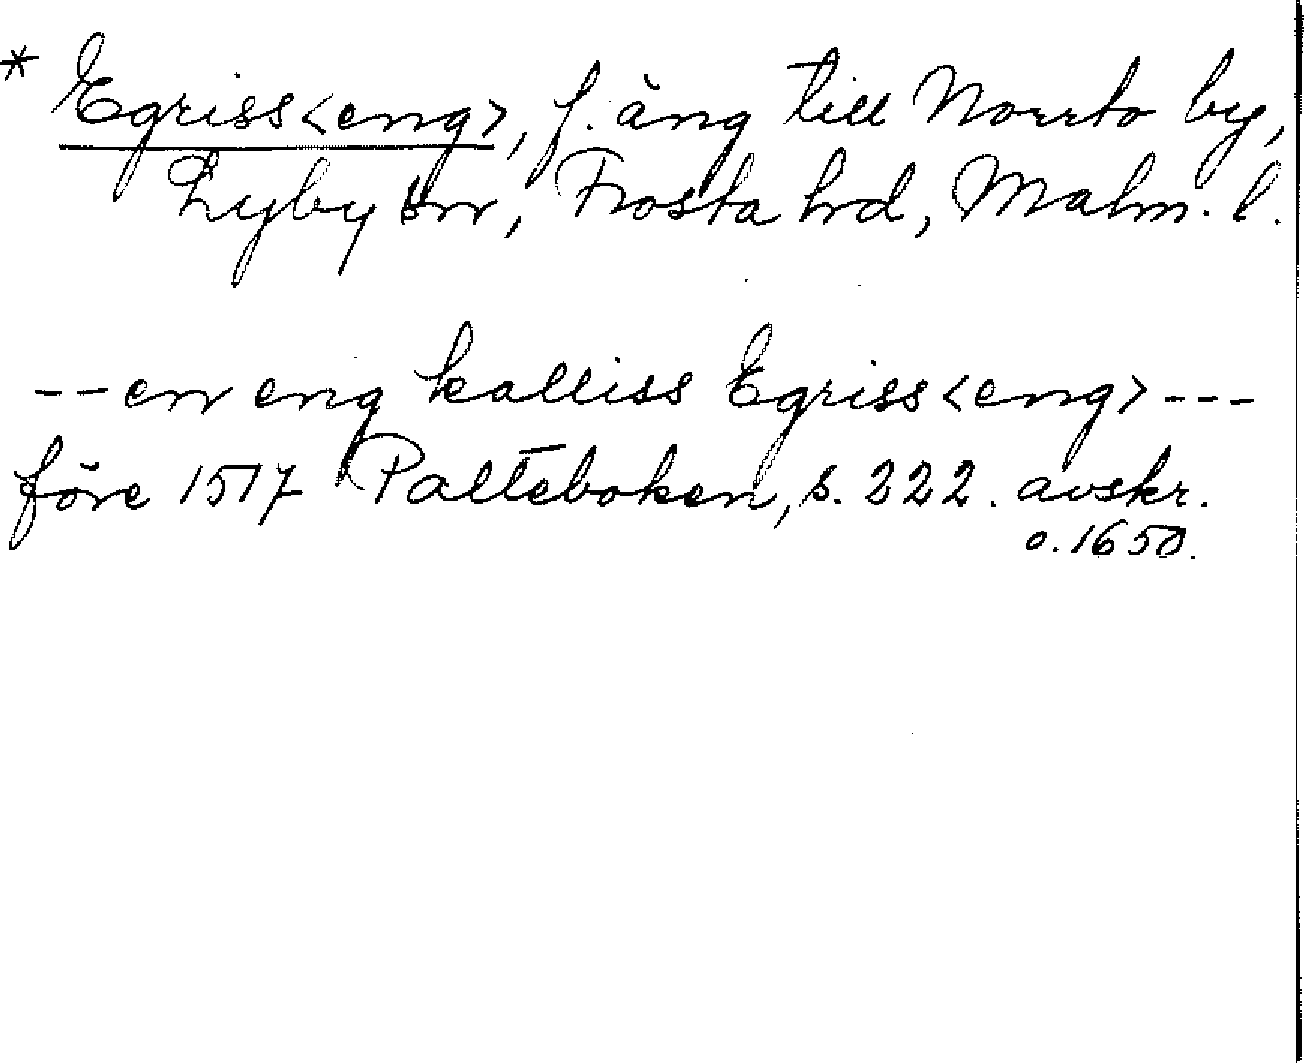 * Egriss<eng>, f. äng till Norrto by,
Lyby sn, Frosta hd, Malm. l.
-- en eng kalliss Egriss<eng> ---
före 1517 Palteboken, s. 222. avskr.
o. 1650.